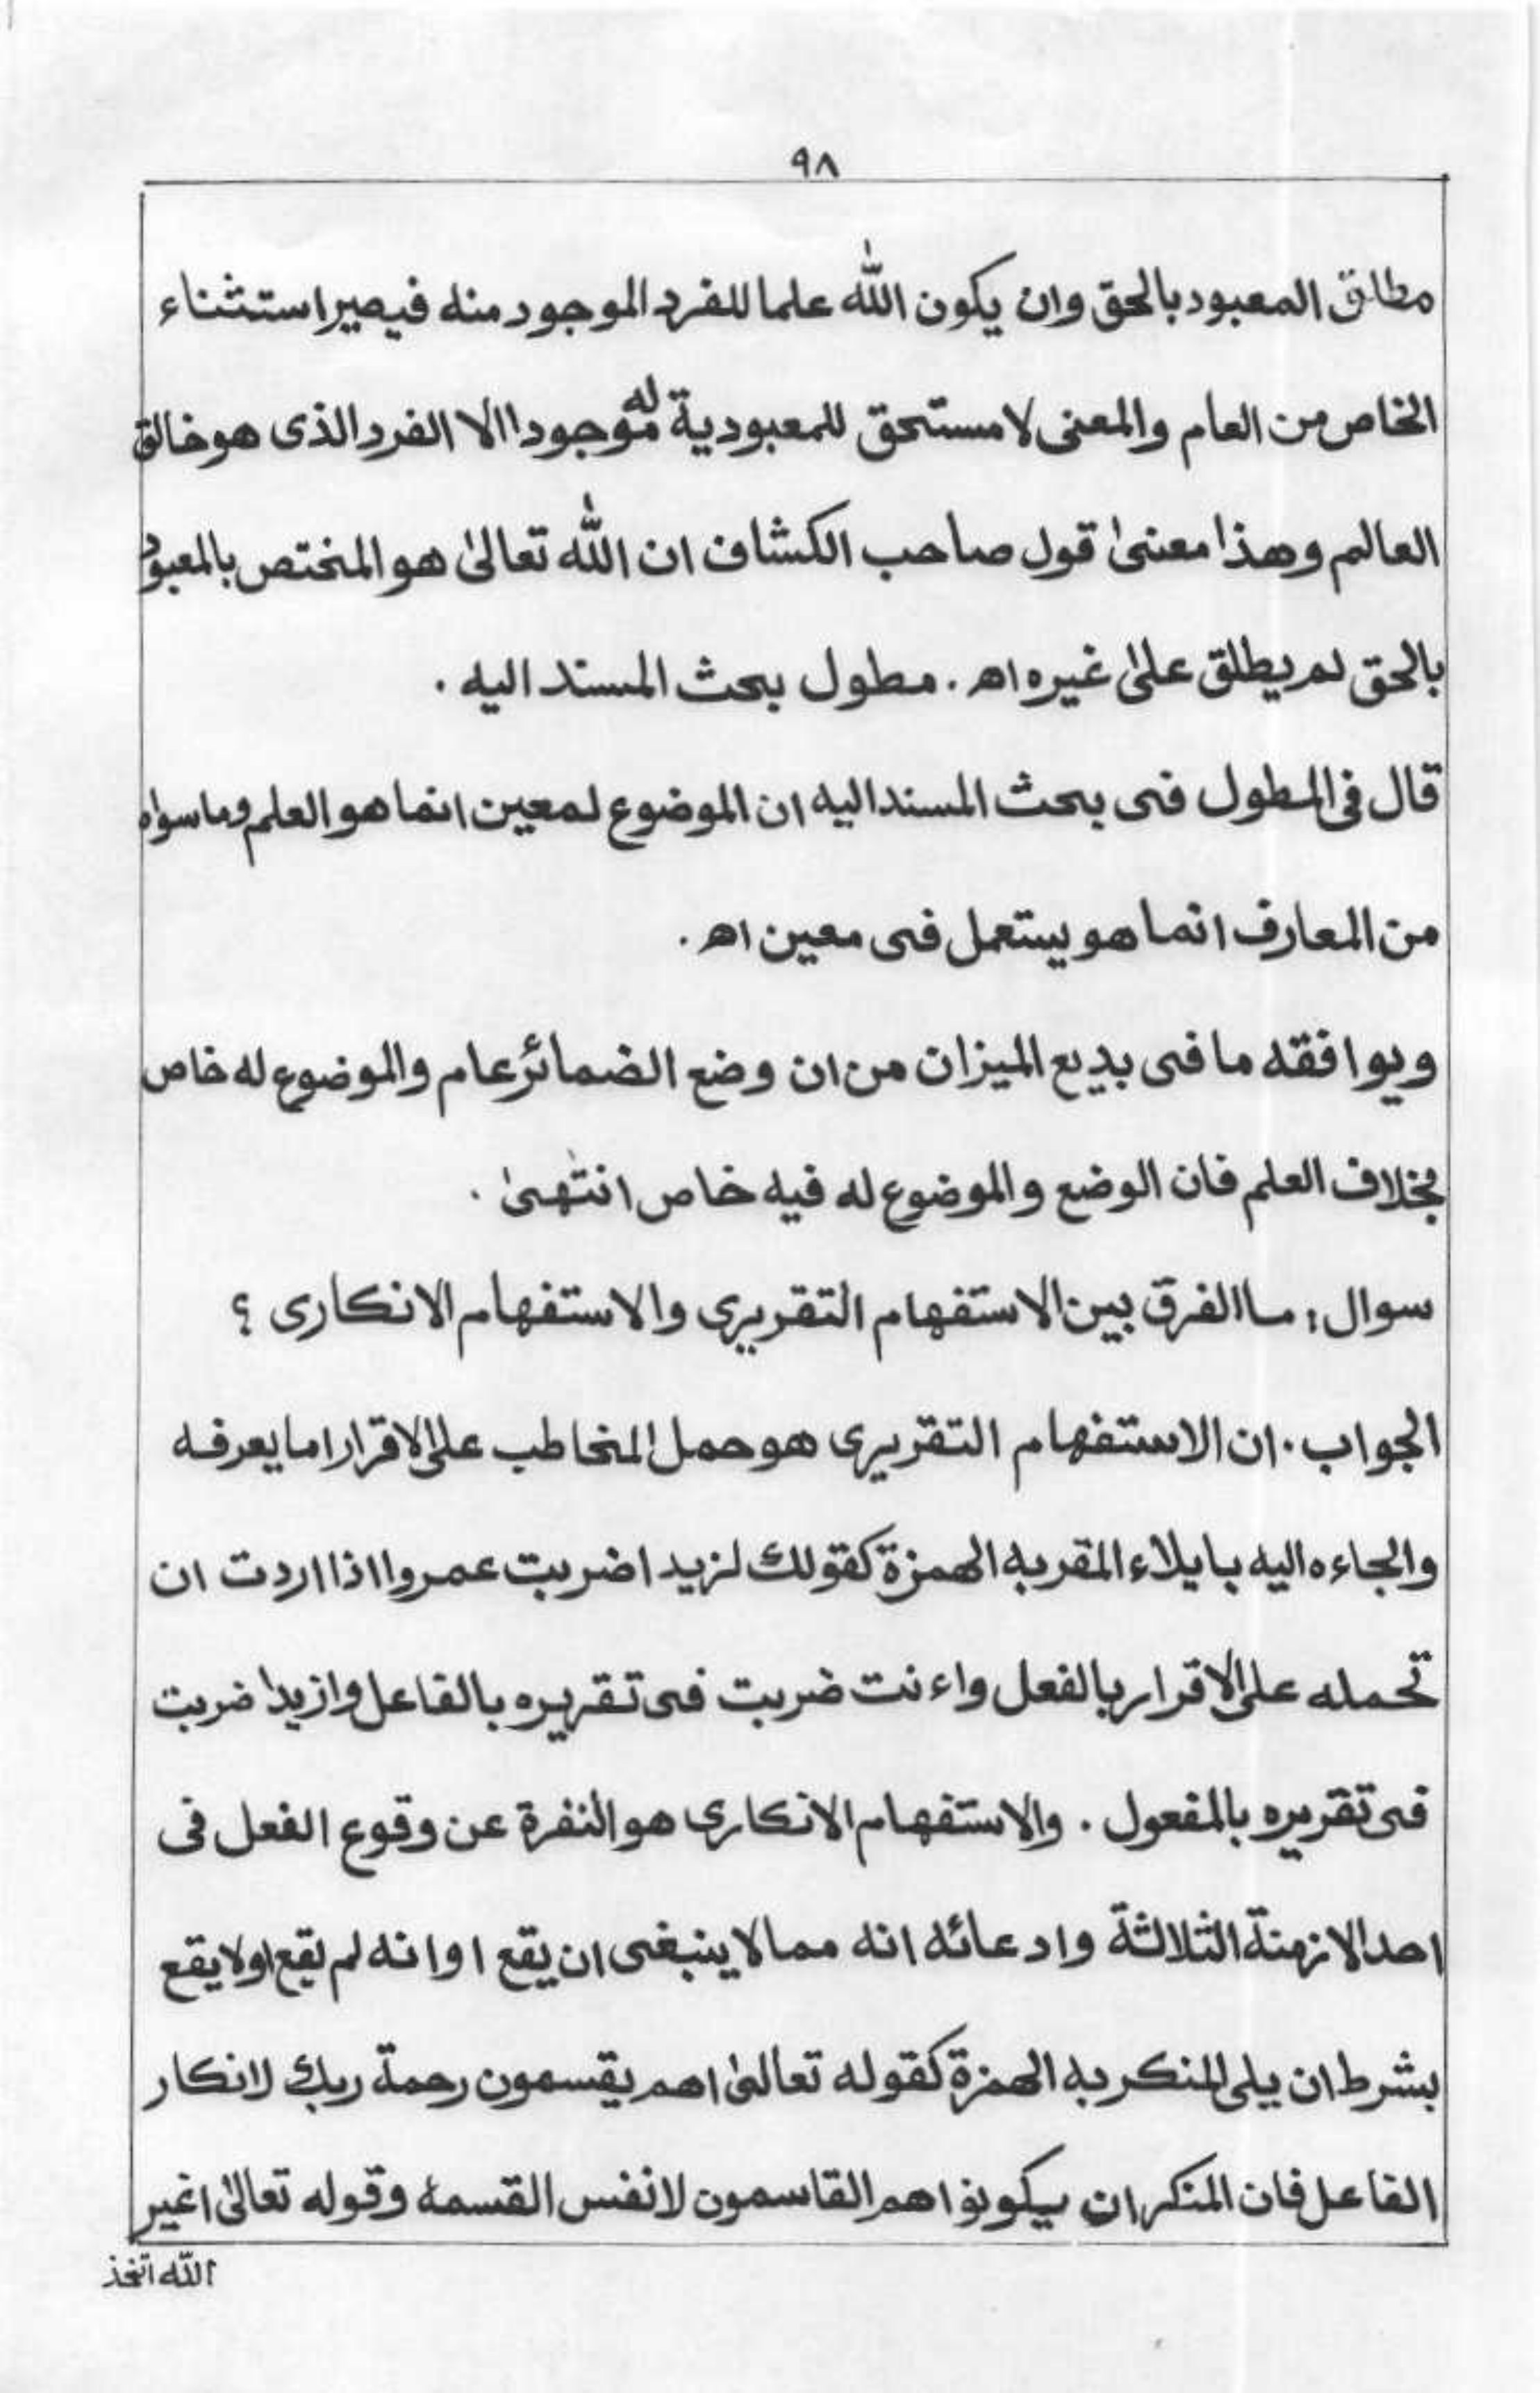 ٩٨
مطلق المعبود بالحق وان يكون الله علما للفرد الموجود منه فيصير استثناء
الخاص من العام والمعنى لا مستحق للمعبودية له موجودا الا الفرد الذى هو خالق
العالم وهذا معنىٰ قول صاحب الكشاف ان الله تعالىٰ هو المختص بالمعبود
بالحق لم يطلق علىٰ غيره اھ . مطول بحث المسند اليه .
قال فى المطول فى بحث المسند اليه ان الموضوع لمعين انما هو العلم وما سواه
من المعارف انما هو يستعمل فى معين اھ .
ويوافقه ما فى بديع الميزان من ان وضع الضمائر عام والموضوع له خاص
بخلاف العلم فان الوضع والموضوع له فيه خاص انتهىٰ .
سوال : ما الفرق بين الاستفهام التقريرى والاستفهام الانكارى ؟
الجواب . ان الاستفهام التقريرى هو حمل المخاطب على الاقرار اما يعرفه
والجاءه اليه بايلاء المقر به الهمزة كقولك لزيد اضربت عمروا اذا اردت ان
تحمله على الاقرار بالفعل واءنت ضربت فى تقريره بالفاعل وازيدا ضربت
فى تقريره بالمفعول . والاستفهام الانكارى هو النفرة عن وقوع الفعل فى
احد الازمنة الثلاثة وادعائه انه مما لا ينبغى ان يقع او انه لم يقع او لا يقع
بشرط ان يلى المنكر به الهمزة كقوله تعالىٰ اهم يقسمون رحمة ربك لانكار
الفاعل فان المنكر ان يكونوا هم القاسمون لا نفس القسمة وقوله تعالىٰ اغير
الله اتخذ